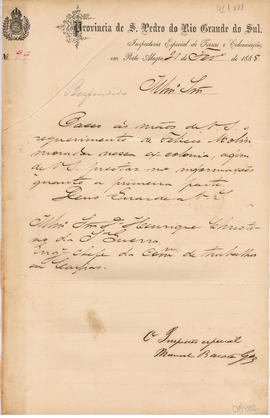 Provincia de S. Pedro do Rio Grande do Sul.
Inspectoria Especial de Terras e Colonisação,
em Porto Alegre 21 de Fev. de 1885
Illmo Snr
Passo ás mãos de V. S. o
requerimento de Felice Molin
morador nessa ex colonia, afim
de V. S. prestar as informações
quanto a primeira parte.
Deus Guarde a V. S.
Illmo Snr Dr Henrique Christi
no da S.a Guerra
Engo Chefe da Com. de trabalhos
em Caxias
O Inspector especial
Manoel Barata Goes